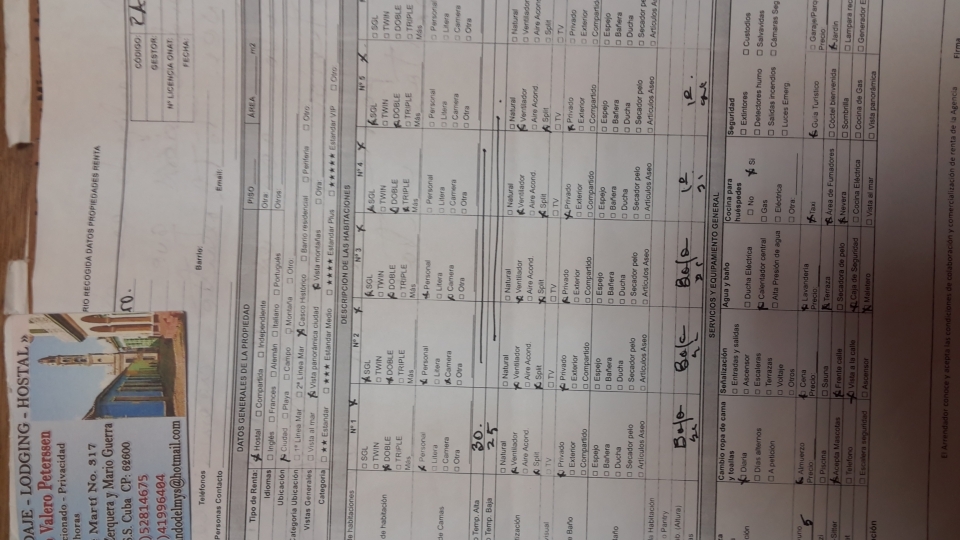 AJE - LODGING - HOSTAL »
Valero Peterssen
ionado - Privacidad
horas
Martí No. 317
erquera y Mario Guerra
S.S. Cuba CP: 62600
52814675
41996484
ndodelmys@hotmail.com
RIO RECOGIDA DATOS PROPIEDADES RENTA
CÓDIGO:
GESTOR:
Nº LICENCIA ONAT:
FECHA:
Teléfonos
Barrio:
Personas Contacto
Email:
DATOS GENERALES DE LA PROPIEDAD
Tipo de Renta: Hostal Compartida Independiente PISO AREA m2
Idiomas Inglés Frances Alemán Italiano Portugués Otra:
Ubicación Ciudad Playa Campo Montaña Otro: Otros:
ategoría Ubicación 1ª Línea Mar 2ª Línea Mar Casco Histórico Barrio residencial Periferia Otro:
Vistas Generales Vista al mar Vista panorámica ciudad Vista montañas Otra:
Categoría ★★ Estandar ★★★ Estandar Medio ★★★★ Estandar Plus ★★★★★ Estandar VIP Otro:
DESCRIPCIÓN DE LAS HABITACIONES
e habitaciones Nº 1 Nº 2 Nº 3 Nº 4 Nº 5
de Habitación SGL SGL SGL SGL SGL SGL
TWIN TWIN TWIN TWIN TWIN TWIN
DOBLE DOBLE DOBLE DOBLE DOBLE DOBLE
TRIPLE TRIPLE TRIPLE TRIPLE TRIPLE TRIPLE
Más Más Más Más Más Más
de Camas Personal Personal Personal Personal Personal Personal
Litera Litera Litera Litera Litera Litera
Camera Camera Camera Camera Camera Camera
Otra Otra Otra Otra Otra Otra
o Temp. Alta 30.
o Temp. Baja 25
tización Natural Natural Natural Natural Natural Natural
Ventilador Ventilador Ventilador Ventilador Ventilador Ventilador
Aire Acond. Aire Acond. Aire Acond. Aire Acond. Aire Acond Aire Acond
Split Split Split Split Split Split
visual TV TV TV TV TV TV
e Baño Privado Privado Privado Privado Privado Privado
Exterior Exterior Exterior Exterior Exterior Exterior
Compartido Compartido Compartido Compartido Compartido Compartido
año Espejo Espejo Espejo Espejo Espejo Espejo
Bañera Bañera Bañera Bañera Bañera Bañera
Ducha Ducha Ducha Ducha Ducha Ducha
Secador pelo Secador pelo Secador pelo Secador pelo Secador pelo Secador pelo
Artículos Aseo Artículos Aseo Artículos Aseo Artículos Aseo Artículos Aseo Artículos Aseo
a Habitación
o Pantry
o. (Altura) Bajo Bajo Bajo
SERVICIOS Y EQUIPAMIENTO GENERAL
Cambio ropa de cama y toallas Señalización Agua y baño Cocina para huéspedes Seguridad
Diaria Entradas y salidas Ducha Eléctrica No Si Extintores Custodios
Días alternos Ascensor Calentador central Gas Detectores humo Salvavidas
A petición Escaleras Alta Presión de agua Eléctrica Salidas incendios Cámaras Seg
Terrazas Otra: Luces Emerg.
Visitae
Otros
Almuerzo Cena Lavandería Taxi Guía Turístico
Precio: Precio: Precio: Precio
Piscina Sauna Terraza Área de Fumadores Cóctel bienvenida Jardín
Acepta Mascotas Frente calle Secadora de pelo Nevera Sombrilla
Teléfono Vista a la calle Caja Seguridad Cocina Eléctrica Cocina de Gas
Escalera seguridad Ascensor Maletero Vista al mar Vista panorámica
El Arrendador conoce y acepta las condiciones de colaboración y comercialización de renta de la Agencia
Firma